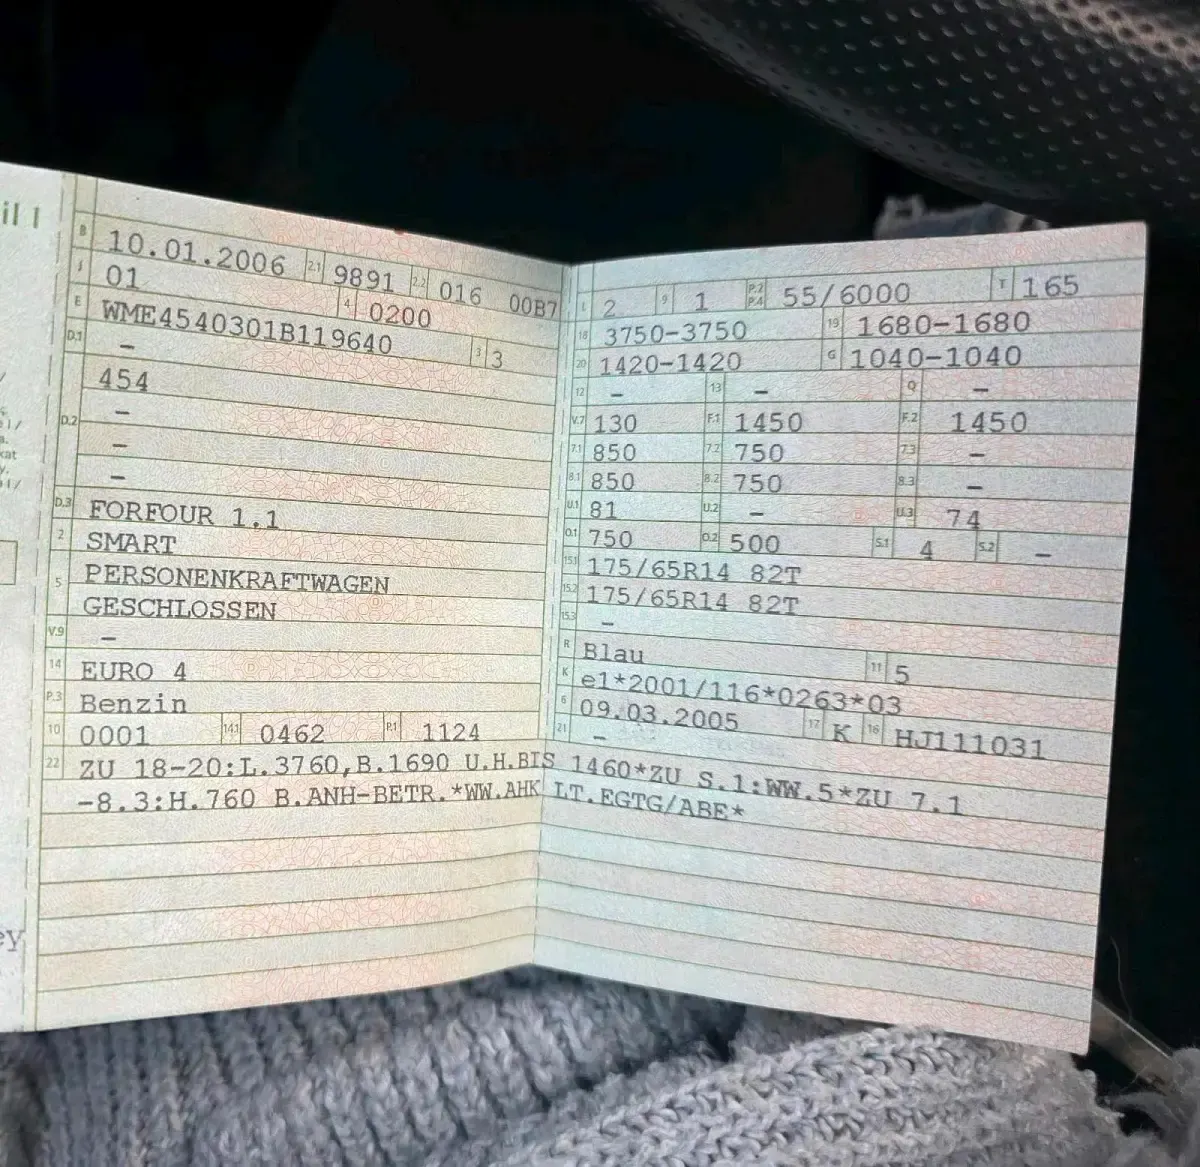 il 1
B 10.01.2006 2.1 9891 2.2 016 00B7
J 01 4 0200
E WME4540301B119640 3 3
D.1 –
454
D.2 –
–
–
D.3 FORFOUR 1.1
2 SMART
5 PERSONENKRAFTWAGEN
GESCHLOSSEN
V.9 –
14 EURO 4
P.3 Benzin
10 0001 14.1 0462 P.1 1124
L 2 9 1 P.2 P.4 55/6000 T 165
18 3750-3750 19 1680-1680
20 1420-1420 G 1040-1040
12 – 13 – Q –
V.7 130 F.1 1450 F.2 1450
7.1 850 7.2 750 7.3 –
8.1 850 8.2 750 8.3 –
U.1 81 U.2 – U.3 74
O.1 750 O.2 500 S.1 4 S.2 –
15.1 175/65R14 82T
15.2 175/65R14 82T
15.3 –
R Blau 11 5
K e1*2001/116*0263*03
6 09.03.2005 17 K 16 HJ111031
21 –
22 ZU 18-20:L.3760,B.1690 U.H.BIS 1460*ZU S.1:WW.5*ZU 7.1
-8.3:H.760 B.ANH-BETR.*WW.AHK LT.EGTG/ABE*
ey